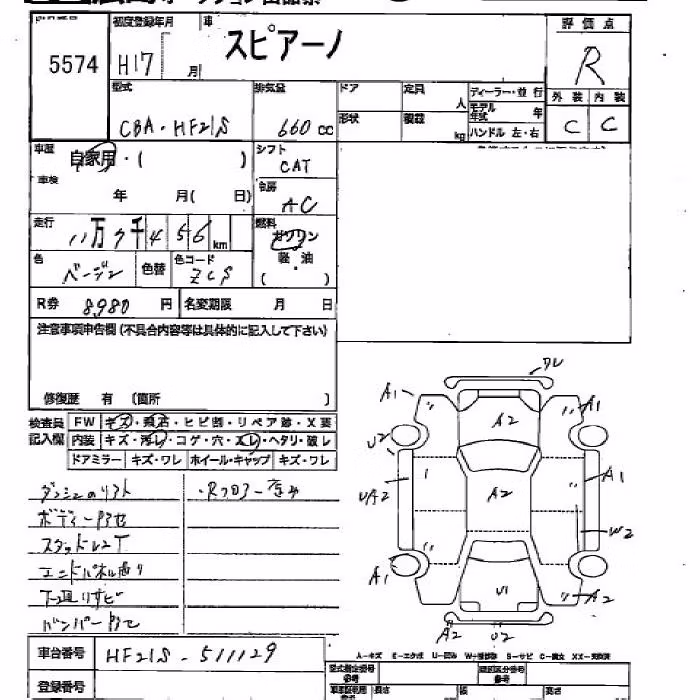 初度登録年月 車 評価点
5574 H17 月 スピアーノ R
型式 排気量 ドア 定員 人 ディーラー・並行 外装 内装
CBA・HF21S 660 cc 形状 積載 kg モデル年式 年 C C
ハンドル 左・右
車歴 自家用・( ) シフト CAT
車検 年 月( 日) 冷房 AC
走行 11万7千456 km 燃料 ガソリン
色 ベージュ 色替 色コード ZCS 軽・油 ( )
R券 8,980 円 名変期限 月 日
注意事項申告欄(不具合内容等は具体的に記入して下さい)
修復歴 有 (箇所 )
検査員 FW キズ・飛石・ヒビ割・リペア跡・X要
記入欄 内装 キズ・汚レ・コゲ・穴・スレ・ヘタリ・破レ
ドアミラー キズ・ワレ ホイール・キャップ キズ・ワレ
・Rフロアー歪み
下廻りサビ
車台番号 HF21S-511129
登録番号
ワレ
A1 A1
A2
U2
UA2 A2 A1
W2
A1 U1 A2
A2 U2
A-キズ E-エクボ U-凹み S-サビ
型式指定番号 類別区分番号
長さ 幅 高さ